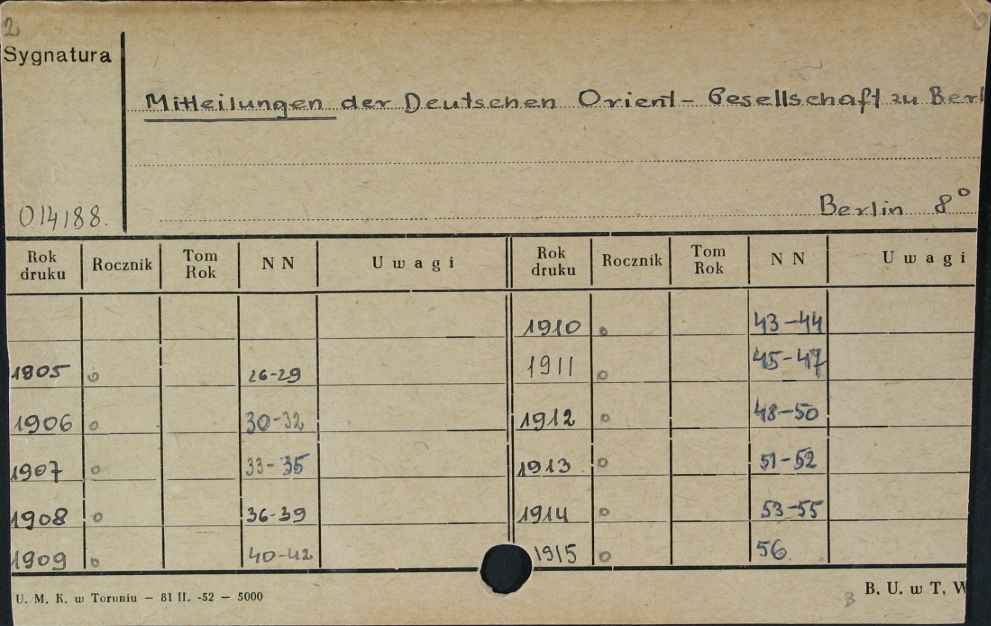 2
Sygnatura
Mitteilungen der Deutschen Orient-Gesellschaft zu Berl
Berlin 8°
014188.
Rok druku Rocznik Tom Rok NN Uwagi Rok druku Rocznik Tom Rok NN Uwagi
1910 o 43-44
1905 o 26-29 1911 o 45-47
1906 o 30-32 1912 o 48-50
1907 o 33-35 1913 o 51-52
1908 o 36-39 1914 o 53-55
1909 o 40-42 1915 o 56
U. M. K. w Toruniu — 81 II. -52 — 5000
B. U. w T. W